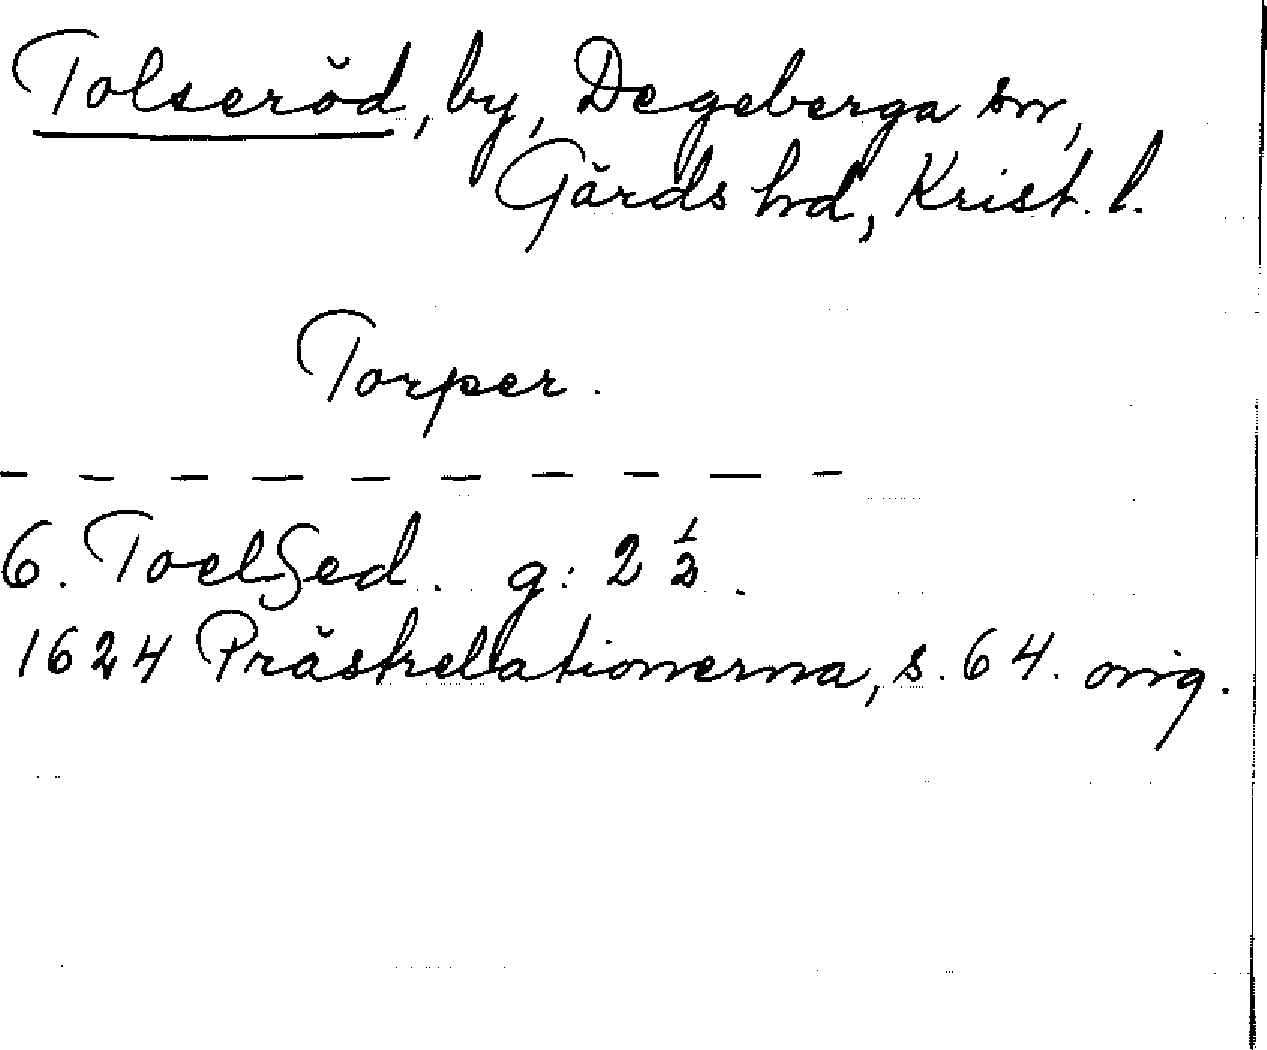 Tolseröd, by, Degeberga sn,
Gärds hd, Krist. l.
Torper.
- - - - - - - - - -
6. Toelsed. g: 2 ½.
1624 Prästrelationerna, s. 64. orig.